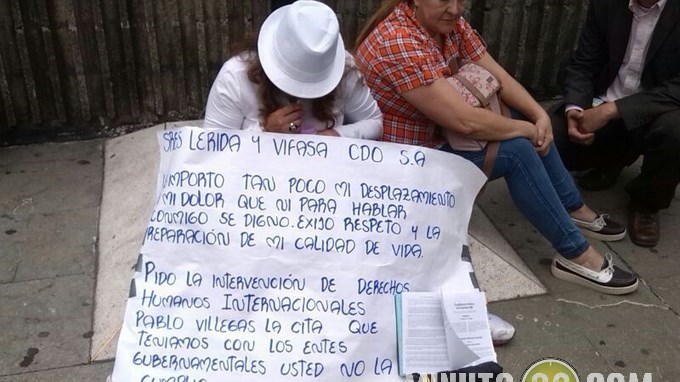 SRES LERIDA Y VIFASA CDO S.A
IMPORTO TAN POCO MI DESPLAZAMIENTO
Y MI DOLOR QUE NI PARA HABLAR
CONMIGO SE DIGNO. EXIJO RESPETO Y LA
REPARACIÓN DE MI CALIDAD DE VIDA.
PIDO LA INTERVENCIÓN DE DERECHOS
HUMANOS INTERNACIONALES
PABLO VILLEGAS LA CITA QUE
TENIAMOS CON LOS ENTES
GUBERNAMENTALES USTED NO LA
CUMPLIO